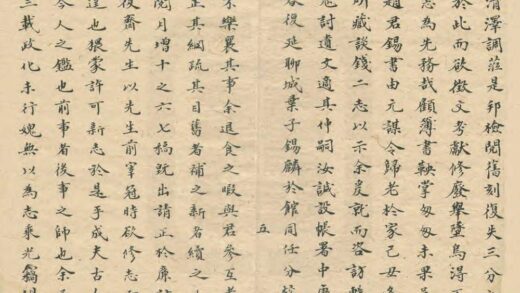 清澤調莅是邦檢閱舊刻復失三分
於此而欲徵文考獻修廢舉墜烏得
志為先務哉顧簿書鞅掌匆匆未果
趙君錫書由元謀令歸老於家己毋
所藏談錢二志以示余爰就而咨訪
討遺文適其仲嗣汝誠設帳署中
春役延聊城葉子錫麟於館同任分
五
不樂襄其事余退食之暇與君參互考
正其綱疏其目舊者補之新者續之
閱月增十之六七稿既出請正於廉
後齋先生以先生前宰冠時欲修志
達也猥蒙許可新志於是乎成夫古
今人之鑑也前事者後事之師也余
三載政化未行媿無以為志乘光竊